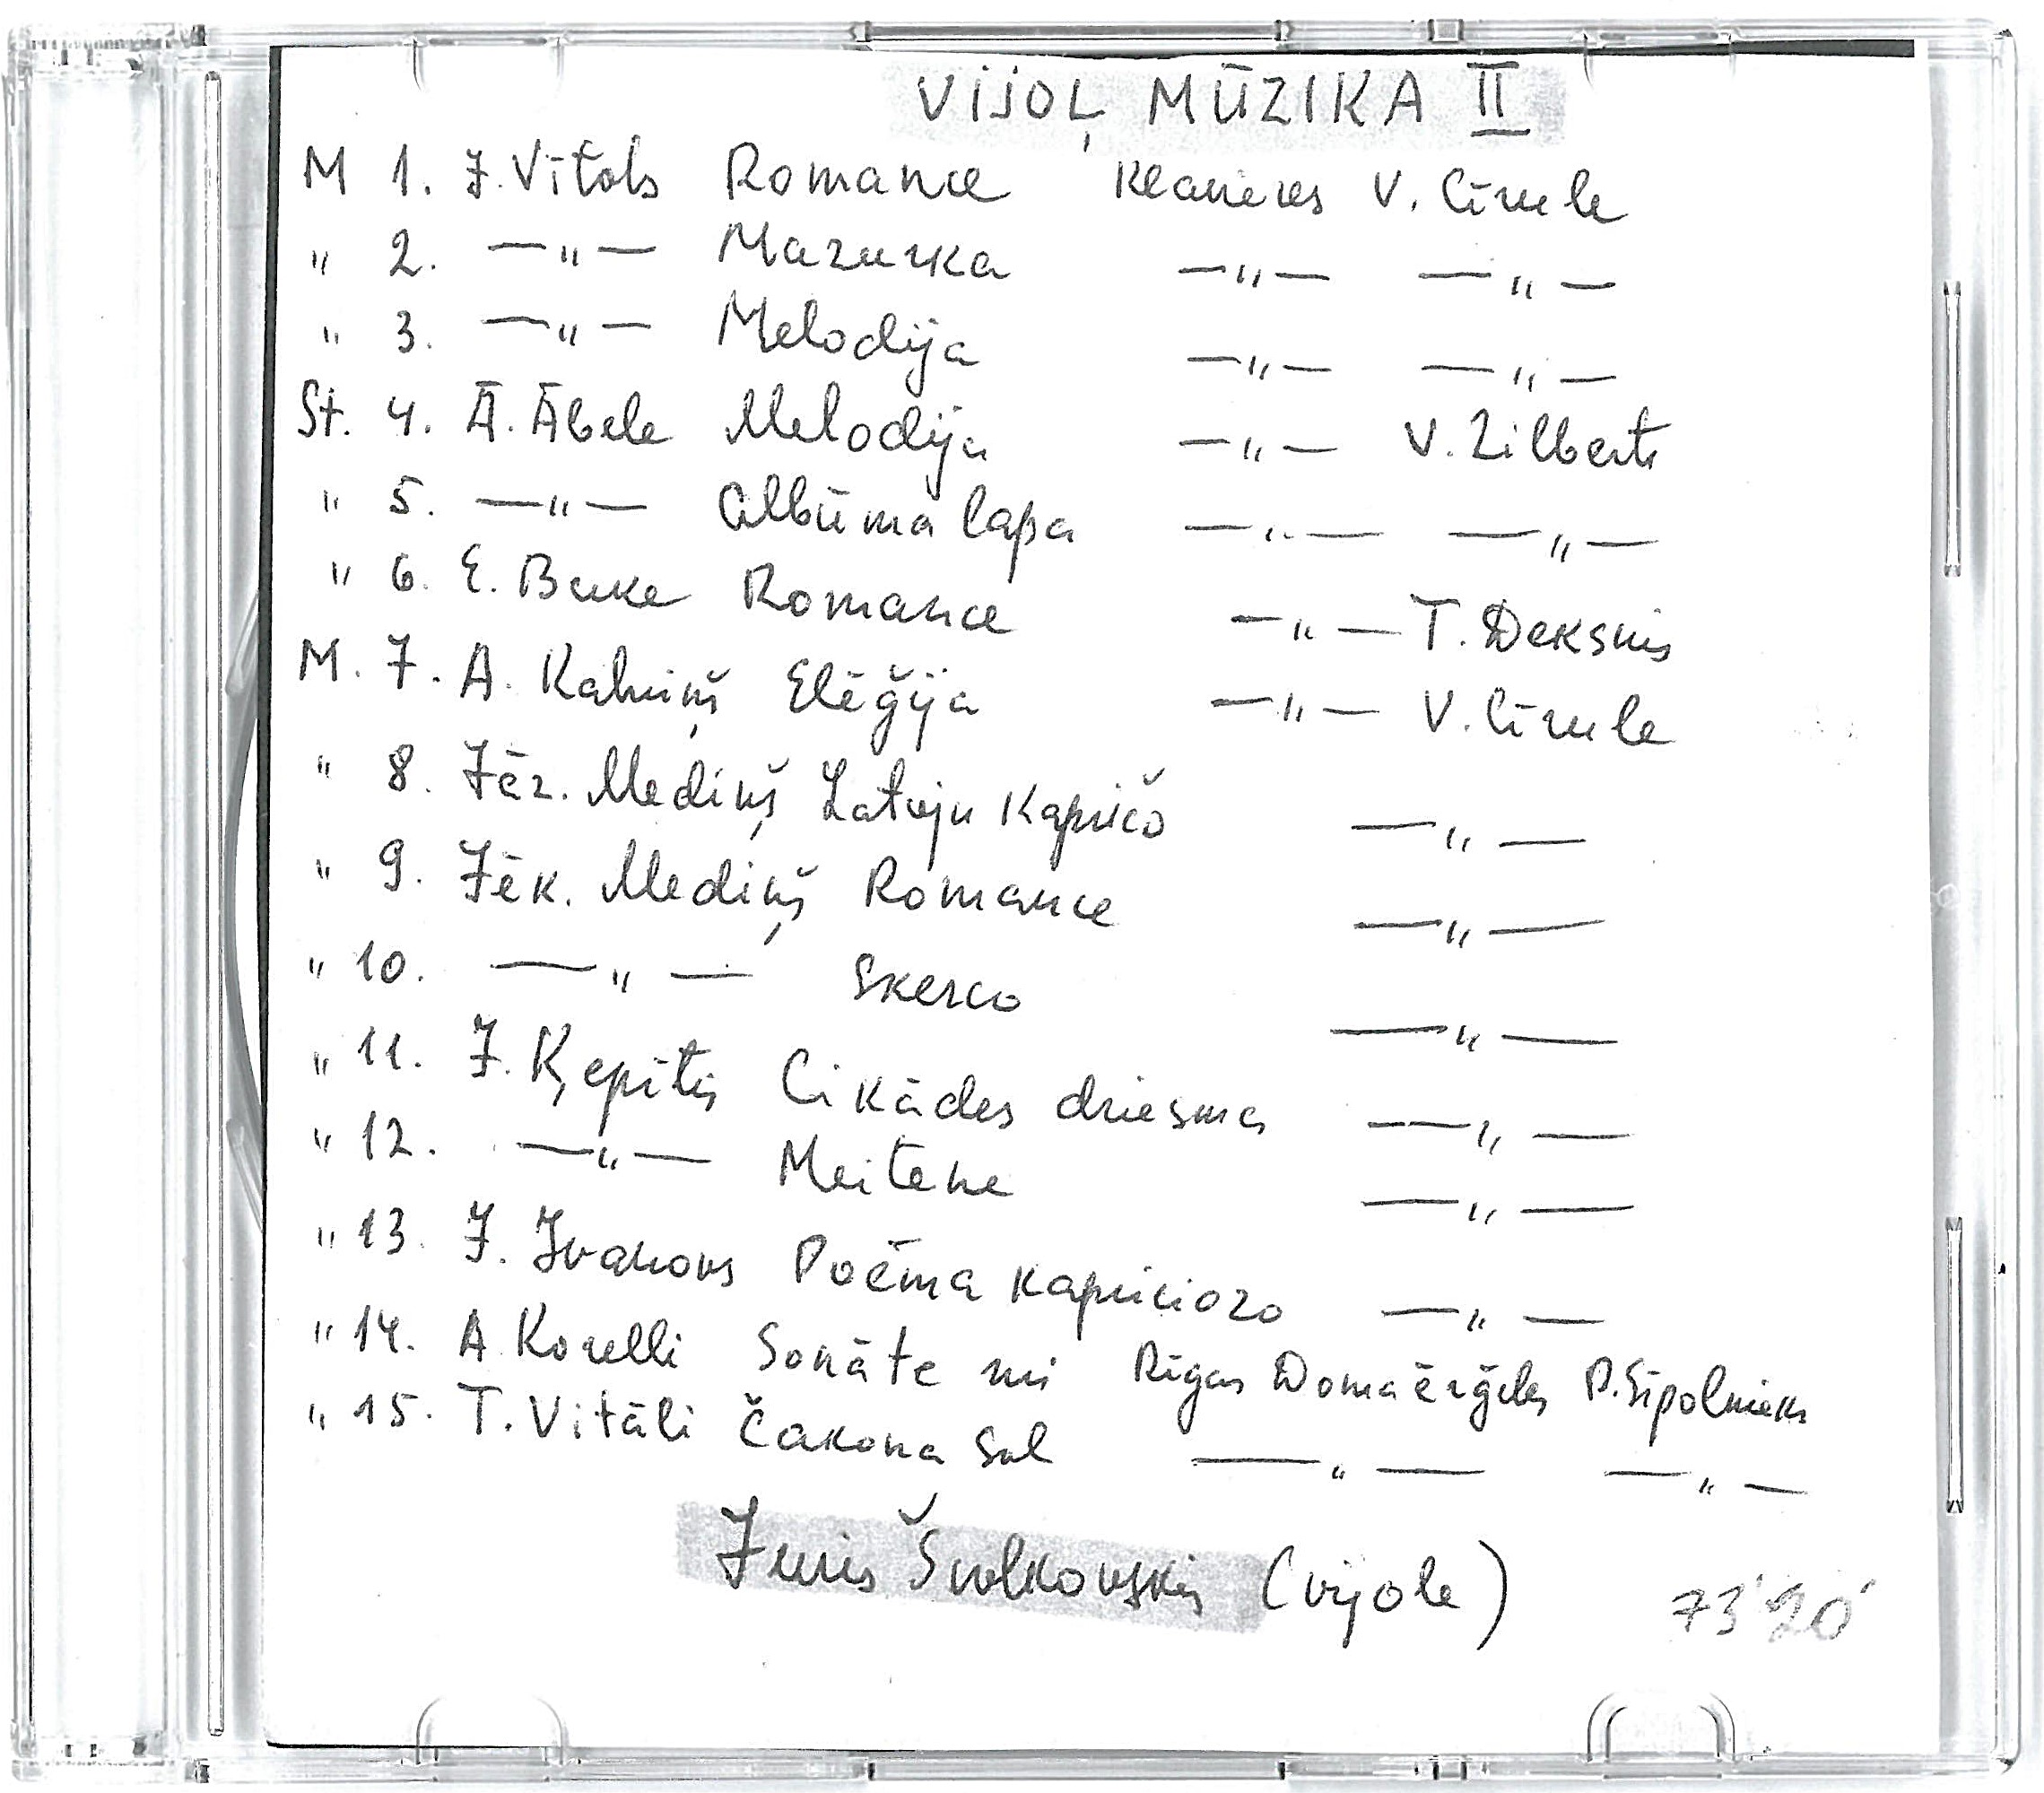 VIJOĻ MŪZIKA II
M 1. J. Vītols Romance Klavieres V. Cīrule
" 2. —"— Mazurka —"— —"—
" 3. —"— Melodija —"— —"—
St. 4. Ā. Ābele Melodija —"— V. Zilberts
" 5. —"— Albūma lapa —"— —"—
" 6. E. Buke Romance —"— T. Deksnis
M. 7. A. Kalniņš Elēģija —"— V. Cīrule
" 8. Jāz. Mediņš Latvju Kapričo —"—
" 9. Jēk. Mediņš Romance —"—
" 10. —"— Skerco —"—
" 11. J. Ķepītis Cikādes dziesma —"—
" 12. —"— Meitene —"—
" 13. J. Ivanovs Poēma kapriciozo —"—
" 14. A. Korelli Sonāte mi Rīgas Doma ērģeles P. Sīpolnieks
" 15. T. Vitāli Čakona sol —"— —"—
Juris Švolkovskis (vijole) 73'20"